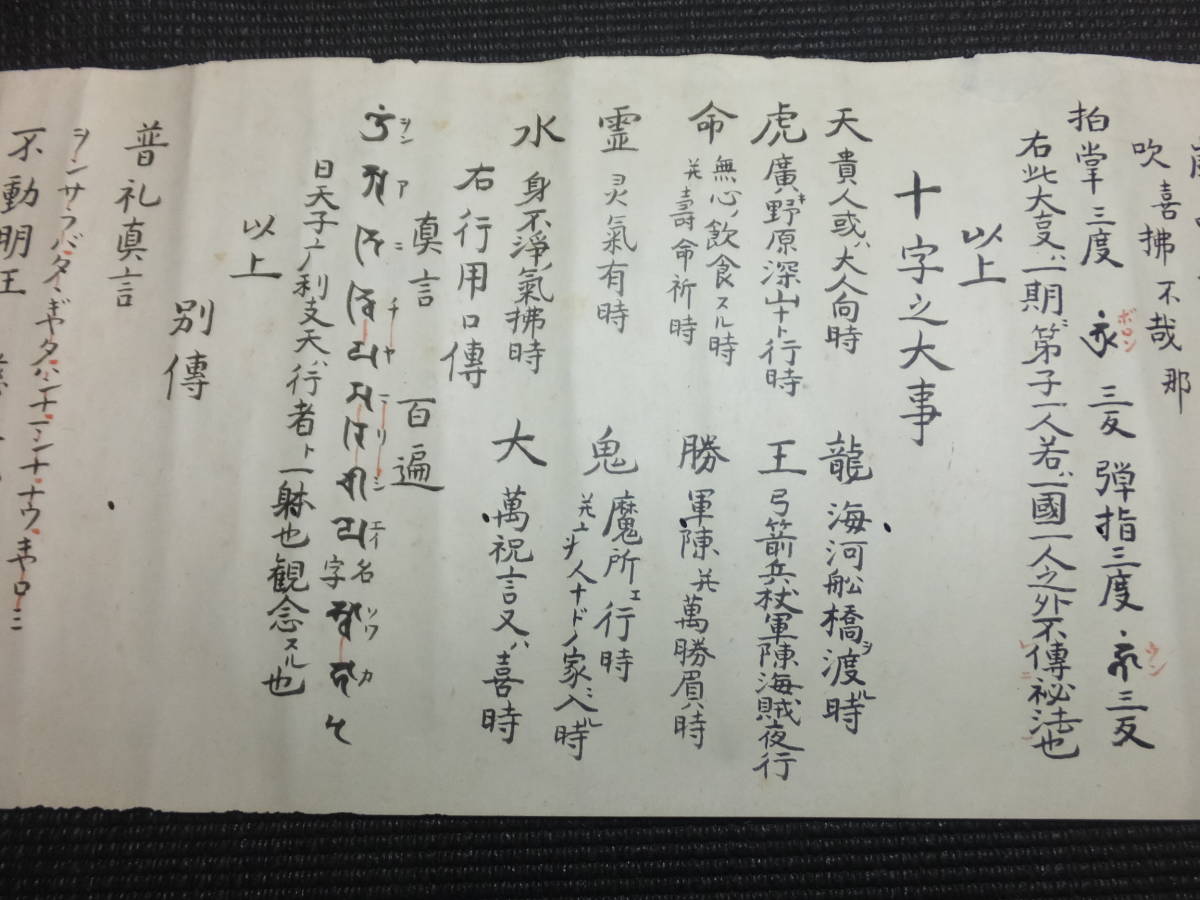 吹喜拂不哉那
拍掌三度 三反 弾指三度 三反
ボロン
ウン
右此大叓ハ一期ニ第子一人若ハ一國一人之外不傳祕法也
以上
十字之大事
天 貴人或ハ大人向時
龍 海河舩橋ヲ渡ル時
虎 廣キ野原深山ナト行時
王 弓箭兵杖軍陳海賊夜行
命 無心ノ飲食スル時
并壽命祈時
勝 軍陳并萬勝眉ハ時
霊 灵氣有時
鬼 魔所エ行時
人ナドノ家ニ入ル時
水 身不淨氣拂時
大 萬祝言又ハ喜時
右行用口傳
真言 百遍
ヲンアニチヤマリシエイソワカ
名字
日天子广利支天ハ行者ト一躰也観念スル也
以上
別傳
普礼真言
ヲンサラバタタギヤタハンナマンナナウキヤロミ
不動明王